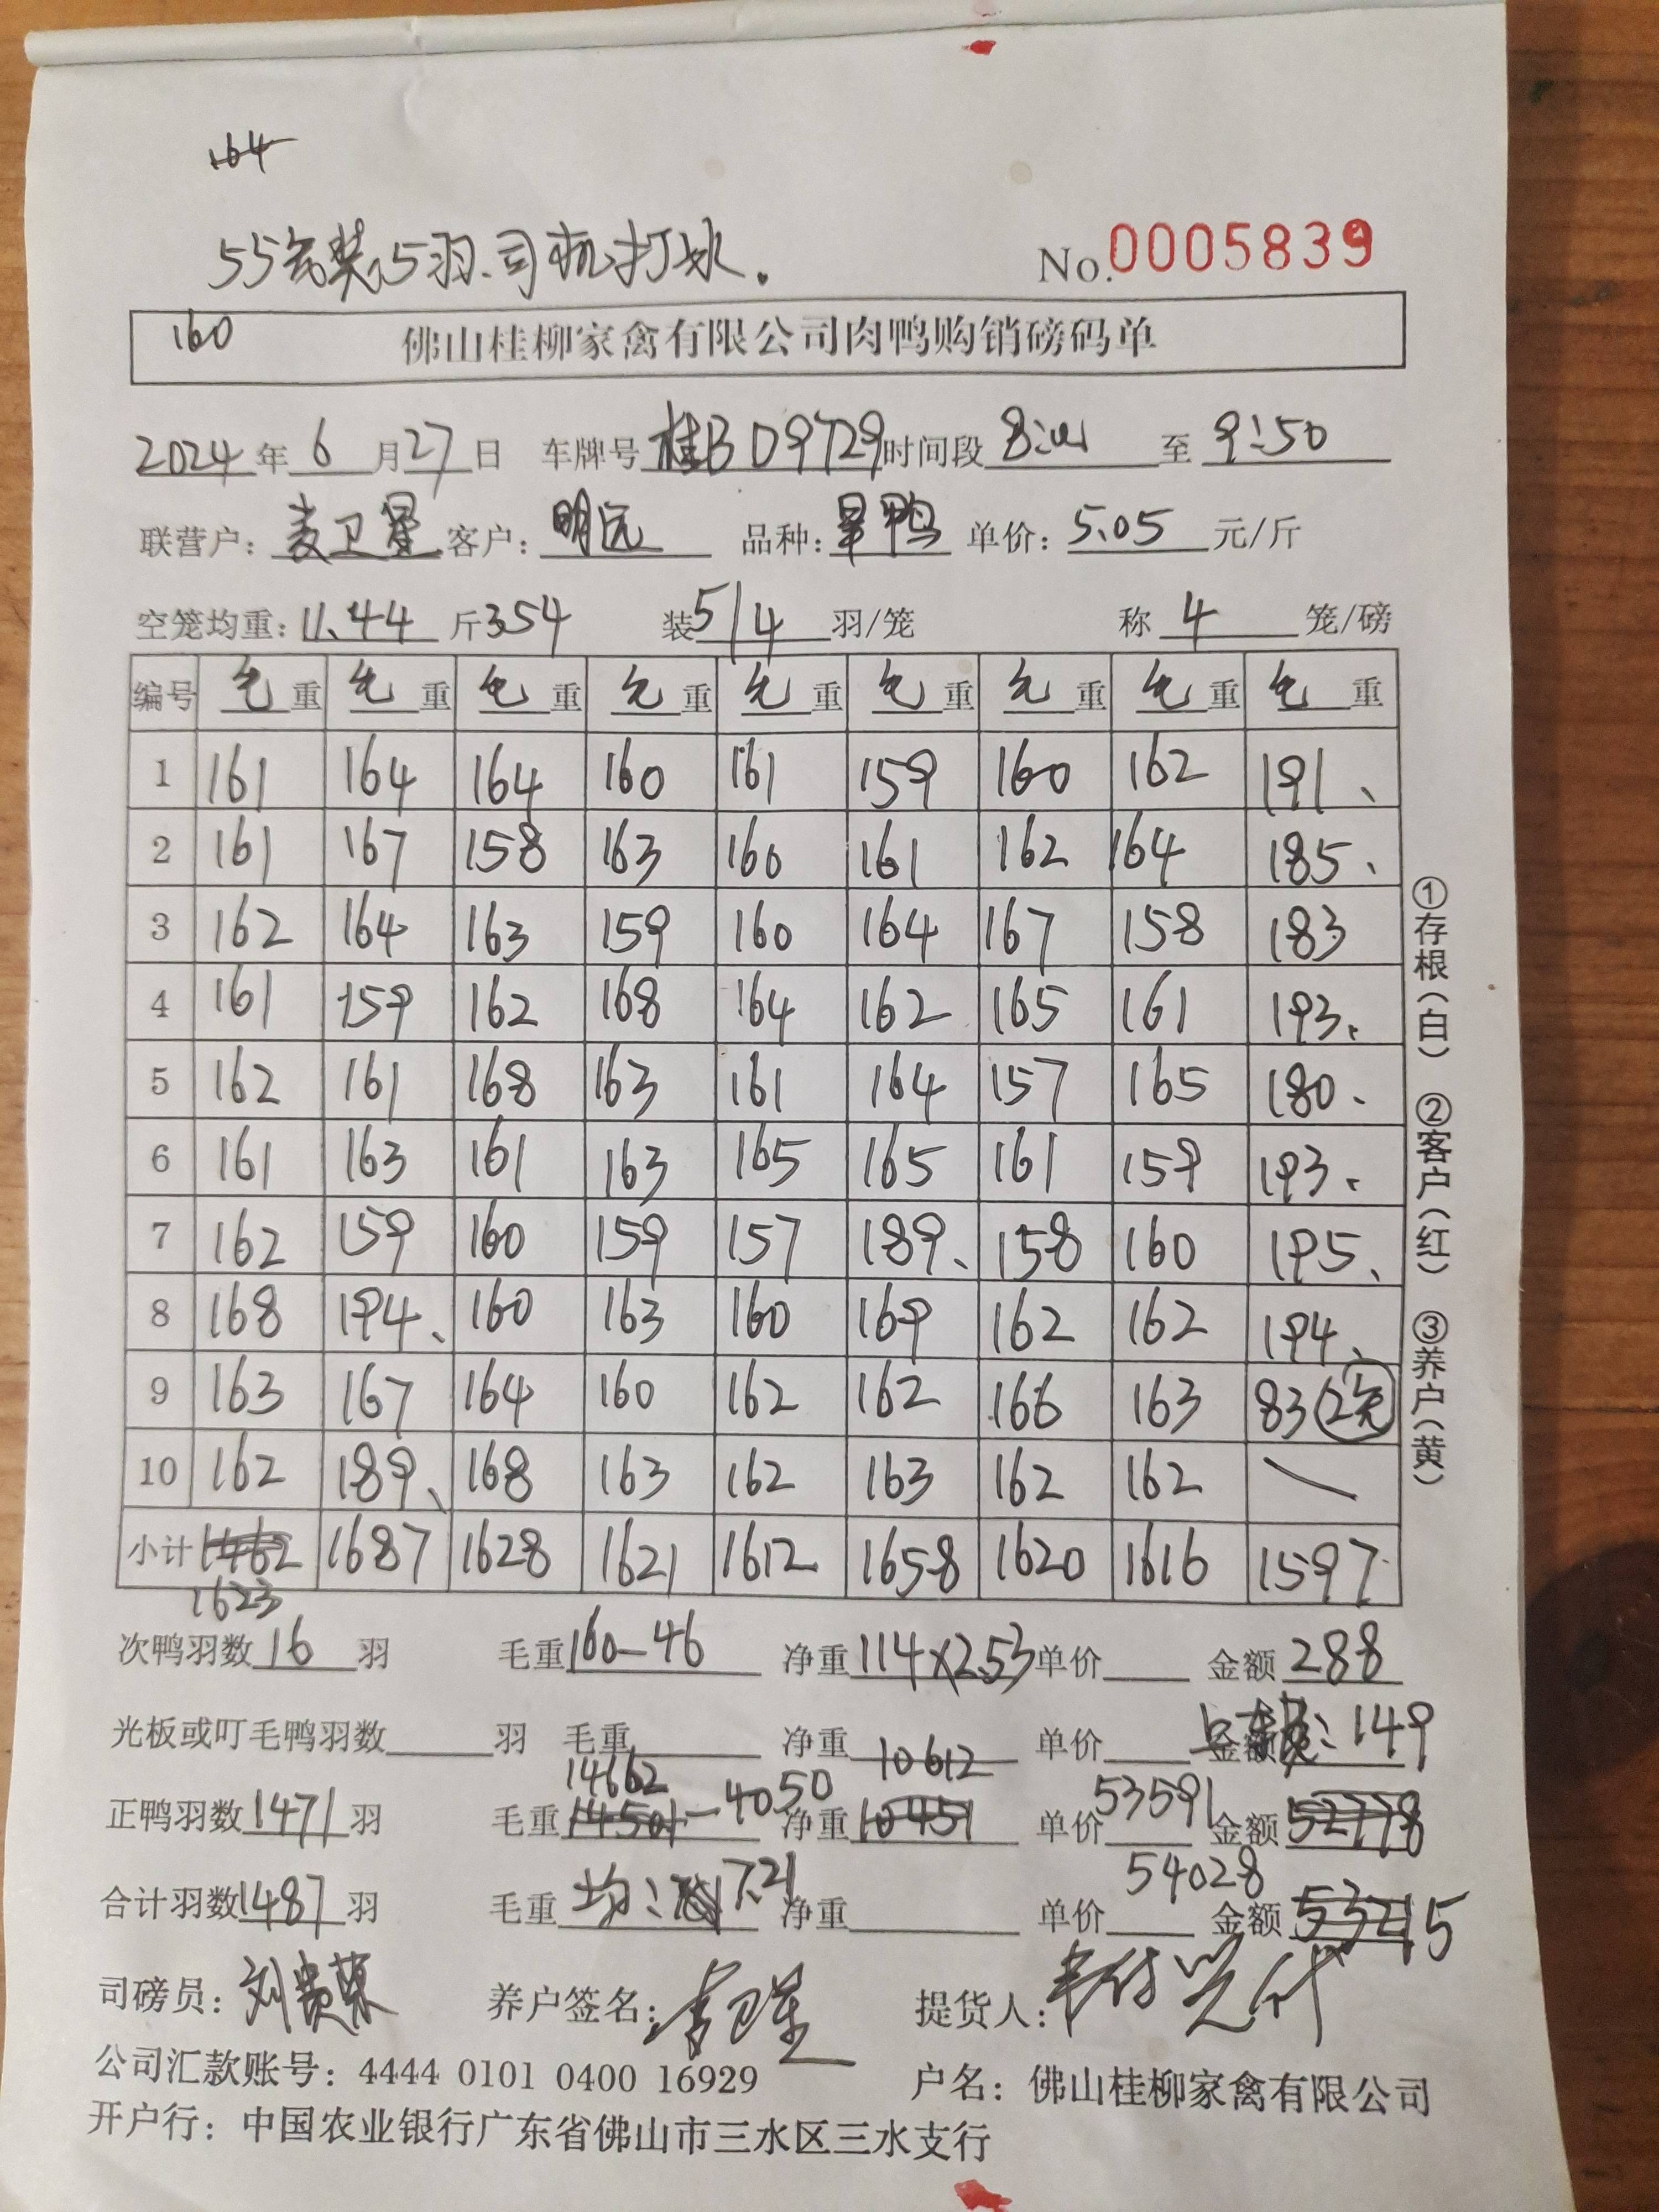 164
55笼装5羽.司机打水.
No.0005839
160
佛山桂柳家禽有限公司肉鸭购销磅码单
2024年6月27日 车牌号桂BD9729时间段8: 至9:50
联营户:麦卫星客户:明远 品种:旱鸭 单价:5.05元/斤
空笼均重:11.44斤354 装5/4羽/笼 称4笼/磅
编号 毛重 毛重 毛重 毛重 毛重 毛重 毛重 毛重 毛重
1 161 164 164 160 161 159 160 162 191、
2 161 167 158 163 160 161 162 164 185、
3 162 164 163 159 160 164 167 158 183
4 161 159 162 168 164 162 165 161 193、
5 162 161 168 163 161 164 157 165 180、
6 161 163 161 163 165 165 161 159 193、
7 162 159 160 159 157 189、 158 160 195、
8 168 194、 160 163 160 169 162 162 194、
9 163 167 164 160 162 162 166 163 83(2笼)
10 162 189、 168 163 162 163 162 162 \
小计 1462 1687 1628 1621 1612 1658 1620 1616 1597
1623
次鸭羽数16羽 毛重160-46 净重114×2.53单价 金额288
光板或叮毛鸭羽数 羽 毛重 净重 单价 金额 : 149
14662 10612 53591
正鸭羽数1471羽 毛重14501-4050 净重10451 单价 金额52778
54028
合计羽数1487羽 毛重 均: 7.21 净重 单价 金额53215
司磅员:刘贵荣 养户签名:麦卫星 提货人:
公司汇款账号:4444 0101 0400 16929 户名:佛山桂柳家禽有限公司
开户行:中国农业银行广东省佛山市三水区三水支行
①存根(白) ②客户(红) ③养户(黄)